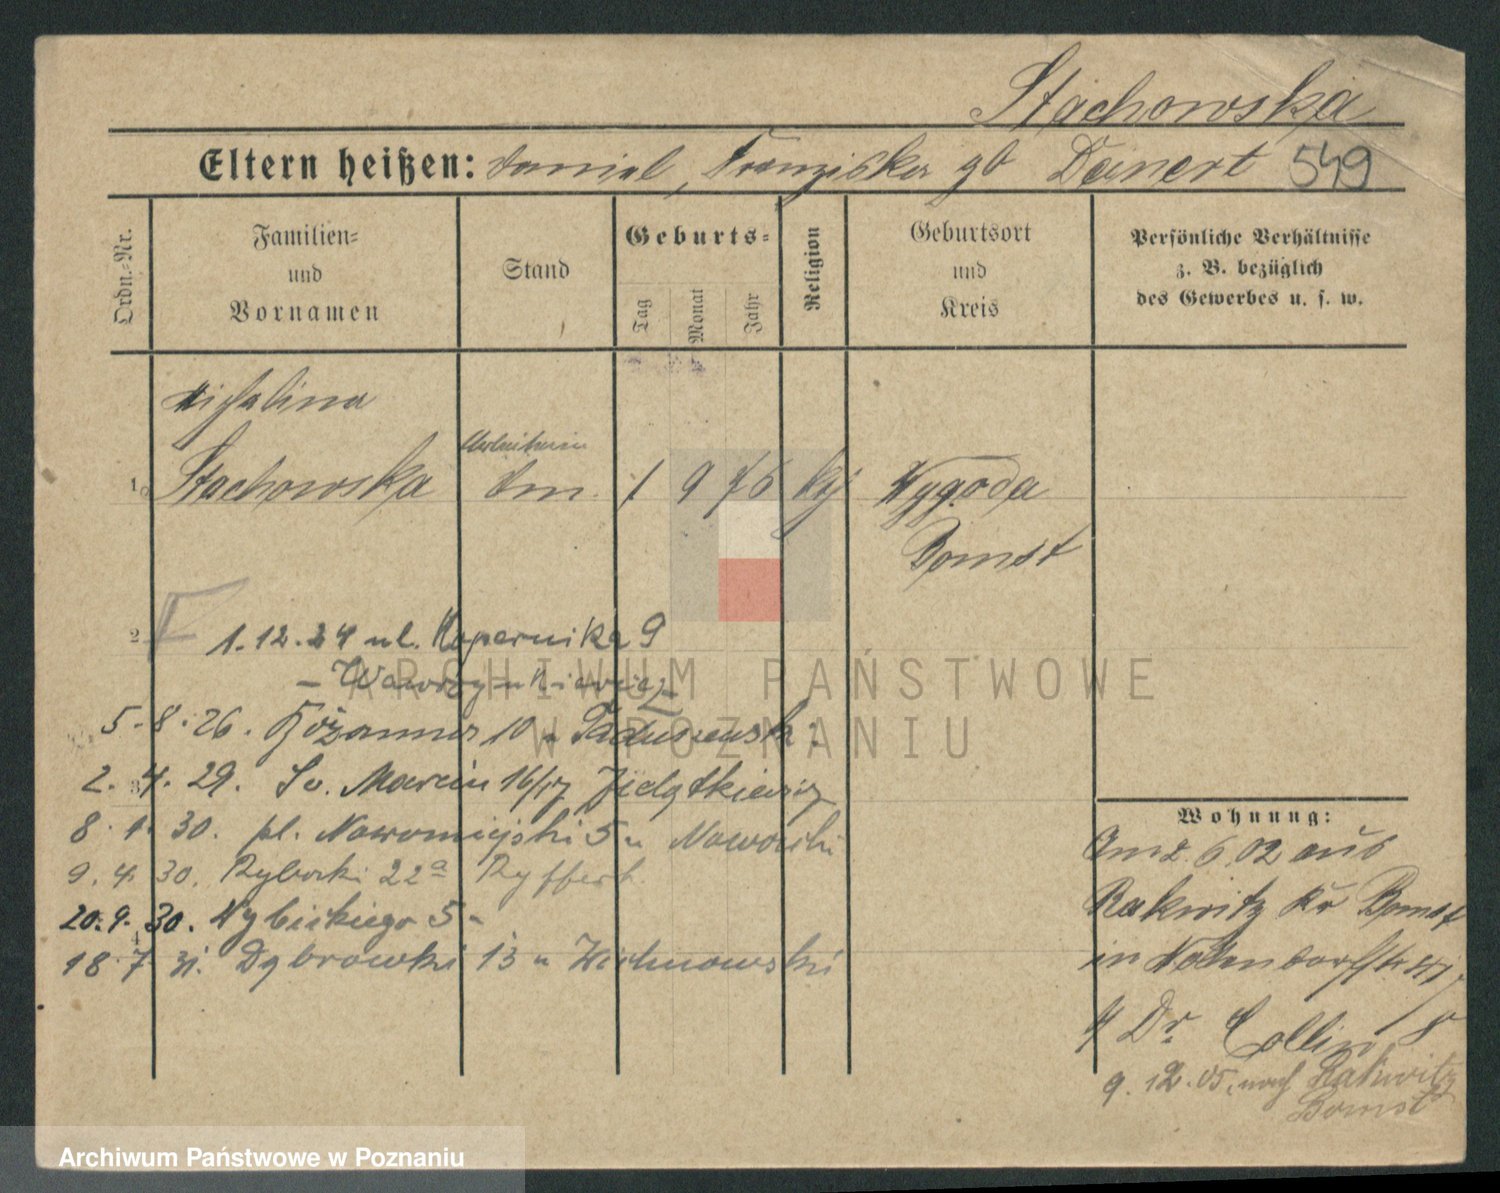 Stachowska
Eltern heißen: Daniel, Franziska gb Deinert 549
Ordn.-Nr.
Familien- und Vornamen
Stand
Geburts-
Tag
Monat
Jahr
Religion
Geburtsort und Kreis
Persönliche Verhältnisse
z. B. bezüglich
des Gewerbes u. s. w.
Michalina
1. Stachowska 1 9 76 Wygoda
Bomst
2
1.12.24 ul. Kopernika 9
5.8.26. 10
2.4.29. Św. Marcin 16/17
3
8. 30. pl. Nowomiejski 5 u Nowoski
9.4.30. Rybaki 22a Ryffert
20.9.30. 5
4
18.7.31. Dąbrowski 13 u
Wohnung:
Am 2.6.02 aus
Rakwitz Kr Bomst
in
Dr. Collin
9.12.05. nach Rakwitz
Bomst
ARCHIWUM PAŃSTWOWE
W POZNANIU
Archiwum Państwowe w Poznaniu